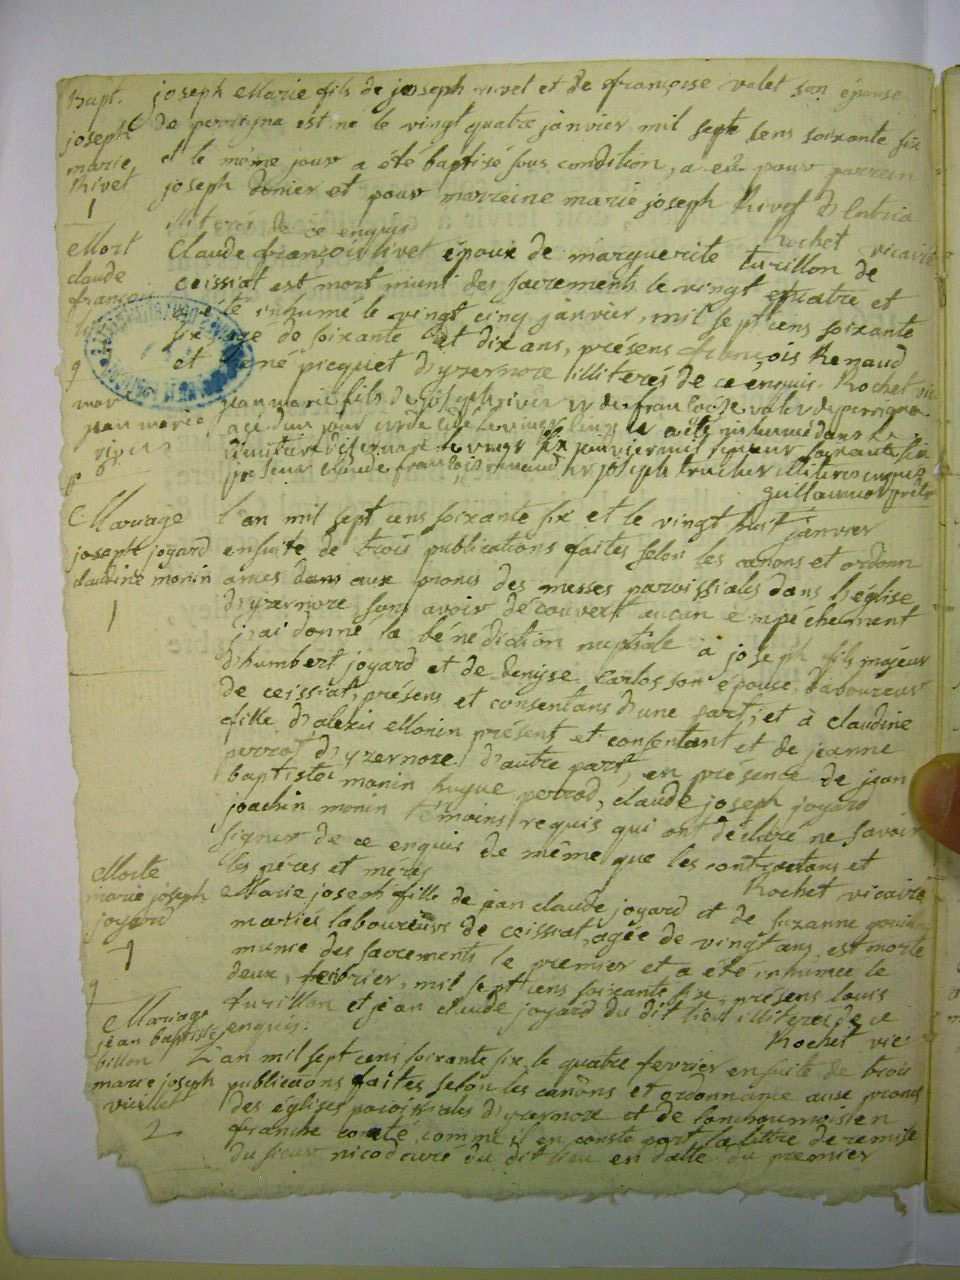 Bapt.
joseph
marie
Rivet
1
joseph Marie fils de joseph rivet et de françoise valet son épouse
de perrigna est ne le vingt quatre janvier mil sept cens soixante six
et le même jour a été baptisé sous condition, a eü pour parrein
joseph donier et pour marreine marie joseph Rivet
illiteres de ce enquis Rochet vicaire
Mort
claude
françois
9
Claude françois livet époux de marguerite turillon de
ceissiat est mort muni des sacrements le vingt quatre et
a été inhumé le vingt cinq janvier, mil sept cens soixante
six agé de soixante et dix ans, présens françois Renaud
et René picquet d'yzernore illiterés de ce enquis. Rochet vic
mor
jean marie
rivet
jean marie fils de joseph rivet et de francoise valet de perrigna
agé dun jour le vingt a été inhumé dans le
cimitiere disernore le vingt six janvier mil soixante six
presens claude francois renaud et joseph truchet illiteres enquis
guillaumot prêtre
Mariage
joseph joyard
claudine monin
1
l'an mil sept cens soixante six et le vingt huit janvier
ensuite de trois publications faites selon les canons et ordonn
ances dans aux prones des messes paroissiales dans l'église
d'yzernore sans avoir decouvert aucun empéchement
j'ai donné la bénédiction nuptiale à joseph fils majeur
d'humbert joyard et de denyse Carlos son épouse laboureur
de ceissiat, présens et consentans d'une part; et à claudine
fille d'alexis Monin présent et consentant et de jeanne
perrot d'yzernore d'autre part, en présence de jean
baptiste monin hugue perrod, claude joseph joyard
joachin monin témoins requis qui ont déclaré ne savoir
signer de ce enquis de même que les contractans et
les péres et méres Rochet vicaire
Morte
marie joseph
joyard
1
9
Marie joseph fille de jean claude joyard et de suzanne
mariés laboureurs de ceissiat agée de vingt ans est morte
munie des sacrements le premier et a été inhumée le
deux, fevrier, mil sept cens soixante six, présens louis
turillon et jean claude joyard du dit lieu illiteres de ce
enquis. Rochet vic
Mariage
jean baptiste
billon
marie joseph
2
L'an mil sept cens soixante six le quatre fevrier ensuite de trois
publications faites selon les canons et ordonnance aux prones
des églises paroissiales d'yzernore et de lonchaumoisien
franche comté, comme il en conste part la lettre de remise
du sieur nicod curé du dit lieu en datte du premier